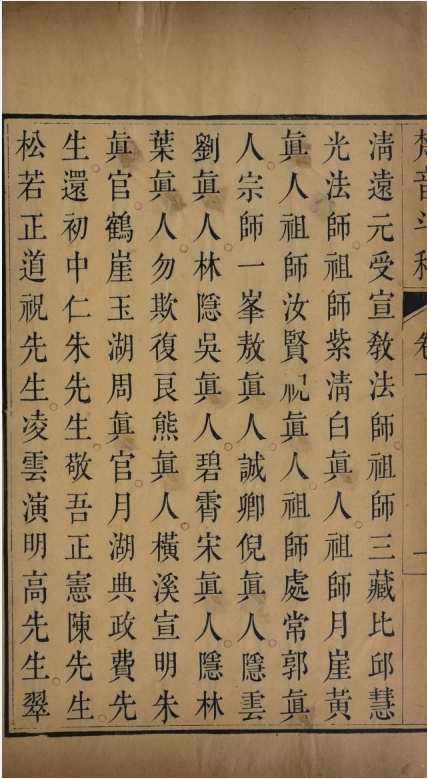 梵音斗科 卷下 一
清遠元受宣敎法師祖師三藏比邱慧
光法師祖師紫淸白眞人祖師月崖黃
眞人祖師汝賢祝眞人祖師處常郭眞
人宗師一峯敖眞人誠卿倪眞人隱雲
劉眞人林隱吳眞人碧霄宋眞人隱林
葉眞人勿欺復艮熊眞人橫溪宣明朱
眞官鶴崖玉湖周眞官月湖典政費先
生還初中仁朱先生敬吾正憲陳先生
松若正道祝先生凌雲演明高先生翠